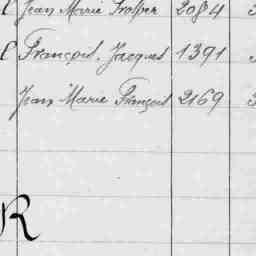 Jean Marie Prosper 2084 3
François, Jacques 1391
Jean Marie François 2169 3
R